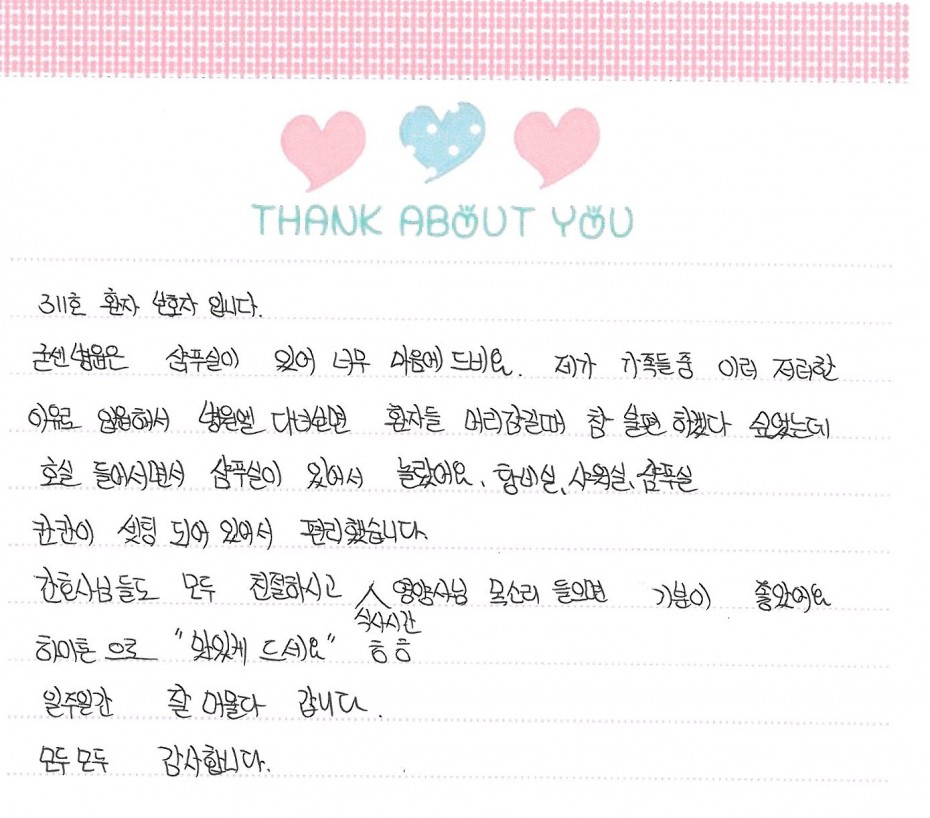 THANK ABOUT YOU
311호 환자 보호자 입니다.
굿센병원은 샴푸실이 있어 너무 마음에 드네요. 제가 가족들 중 이러 저러한
이유로 입원해서 병원엘 다녀보면 환자들 머리감길때 참 불편 하겠다 싶었는데
호실 들어서면서 샴푸실이 있어서 놀랐어요. 탕비실, 샤워실, 샴푸실
칸칸이 셋팅 되어 있어서 편리했습니다.
간호사님들도 모두 친절하시고 영양사님 목소리 들으면 기분이 좋았어요
식사시간
하이톤 으로 "맛있게 드세요" ㅎㅎ
일주일간 잘 머물다 갑니다.
모두모두 감사합니다.